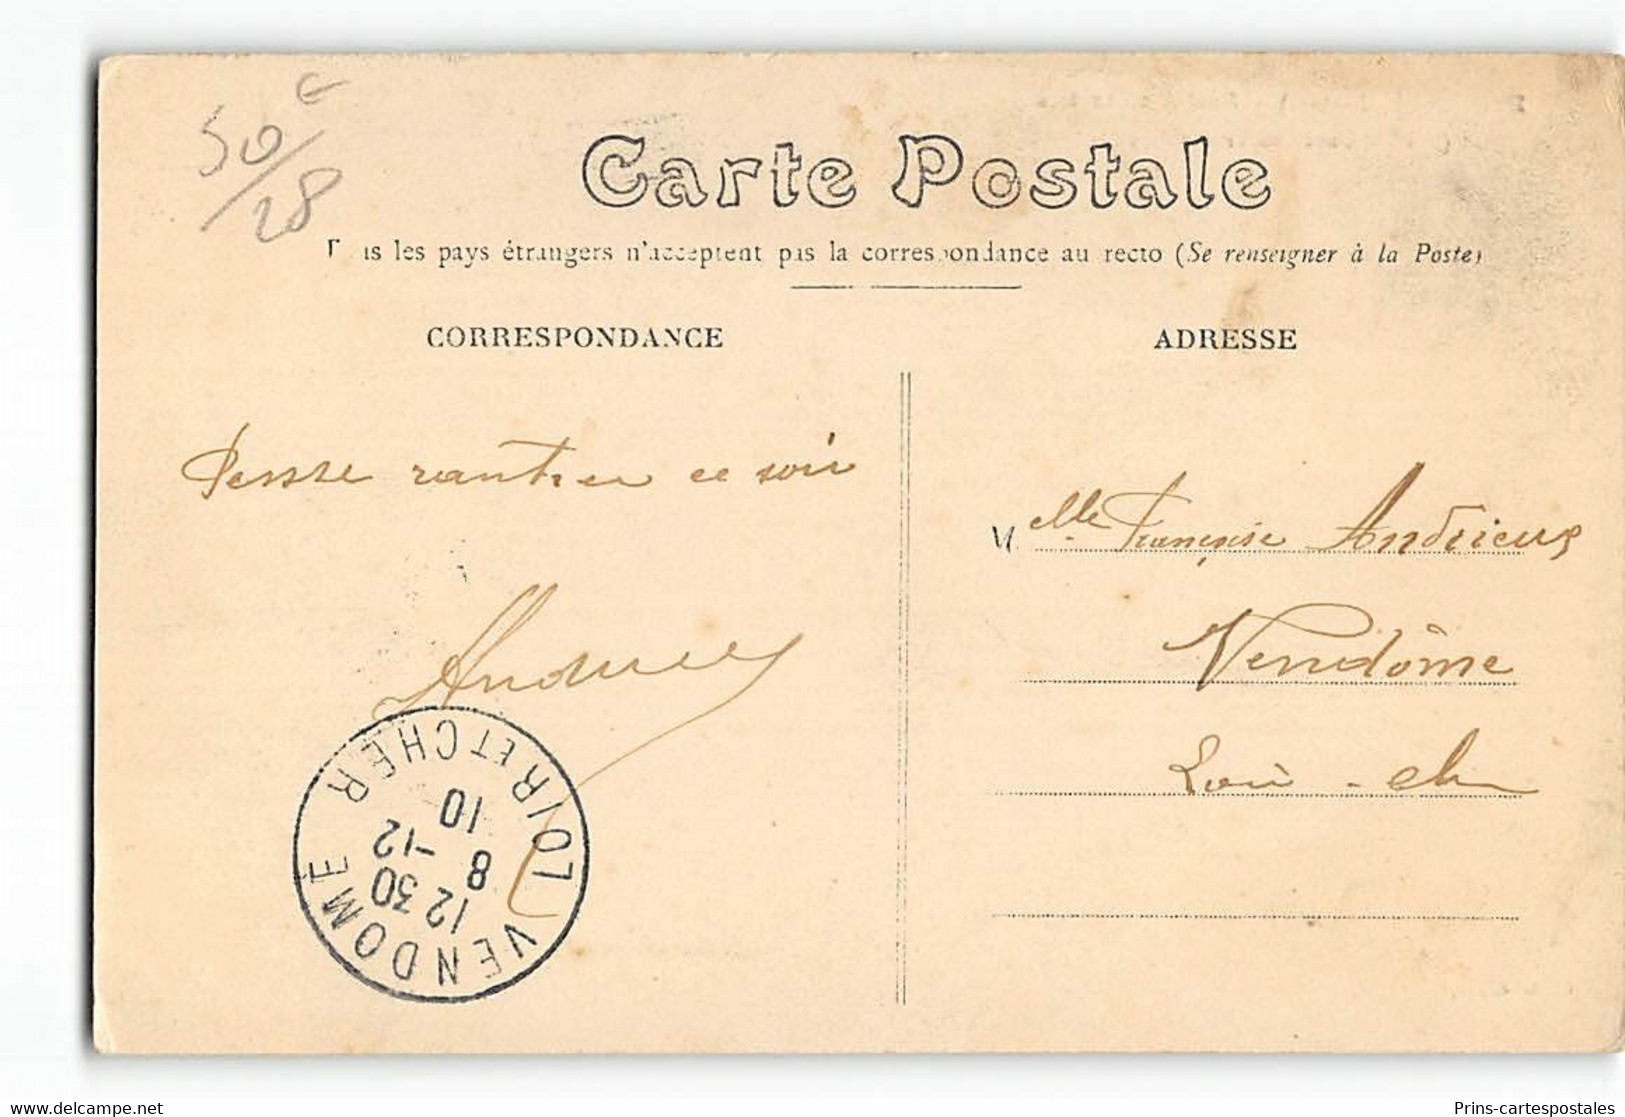 50 €
/28
Carte Postale
les pays étrangers n'acceptent pas la correspondance au recto (Se renseigner à la Poste)
CORRESPONDANCE
ADRESSE
Pensse rantrer ce soir
Andrieux
Melle Françoise Andrieux
Vendôme
Loir-Cher
VENDOME LOIR ET CHER
12 30
8 -12
10
www.delcampe.net
Prins-cartespostales